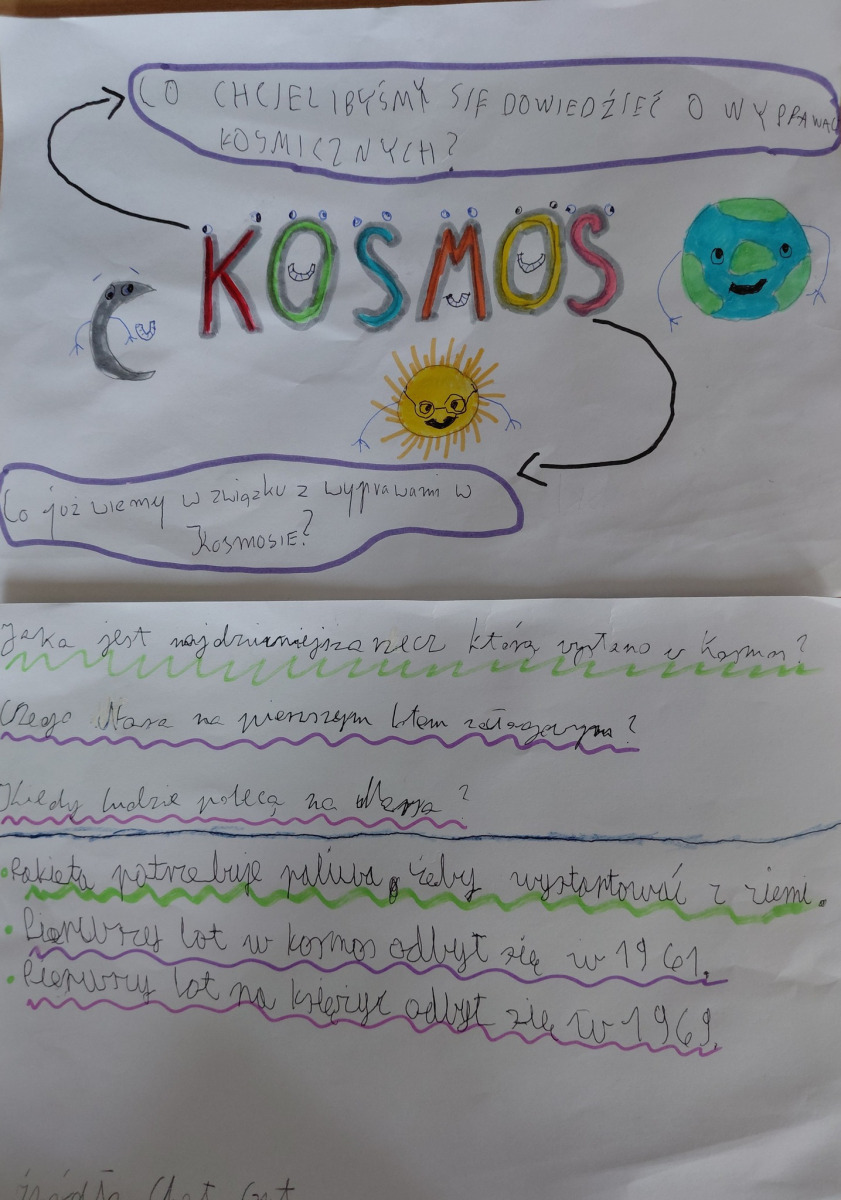 CO CHCIELIBYŚMY SIĘ DOWIEDŹIEĆ O WYPRAWAC
KOSMICZNYCH?
KOSMOS
Co już wiemy w związku z wyprawami w
KosmosIE?
Jaka jest najdziwniejsza rzecz którą wysłano w Kosmos?
Czego Nasa na pierwszym lotem załogowym?
Kiedy ludzie polecą na Marsa?
•Rakieta potrzebuje paliwa, żeby wystartować z ziemi.
•Pierwszy lot w kosmos odbył się w 1961.
•Pierwszy lot na księżyc odbył się w 1969.
źródło Chat Gpt